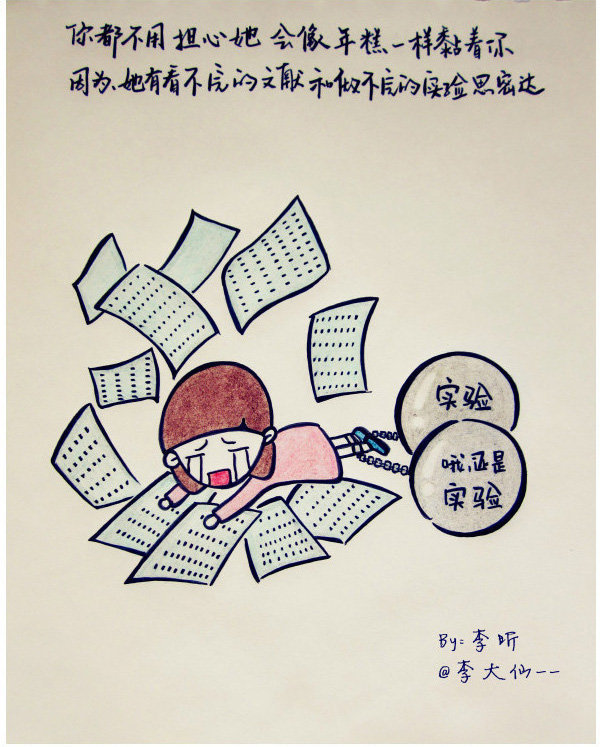 你都不用担心她会像年糕一样黏着你
因为、她有看不完的文献和做不完的实验思密达
实验
哦,还是
实验
By: 李昕
@李大仙一一